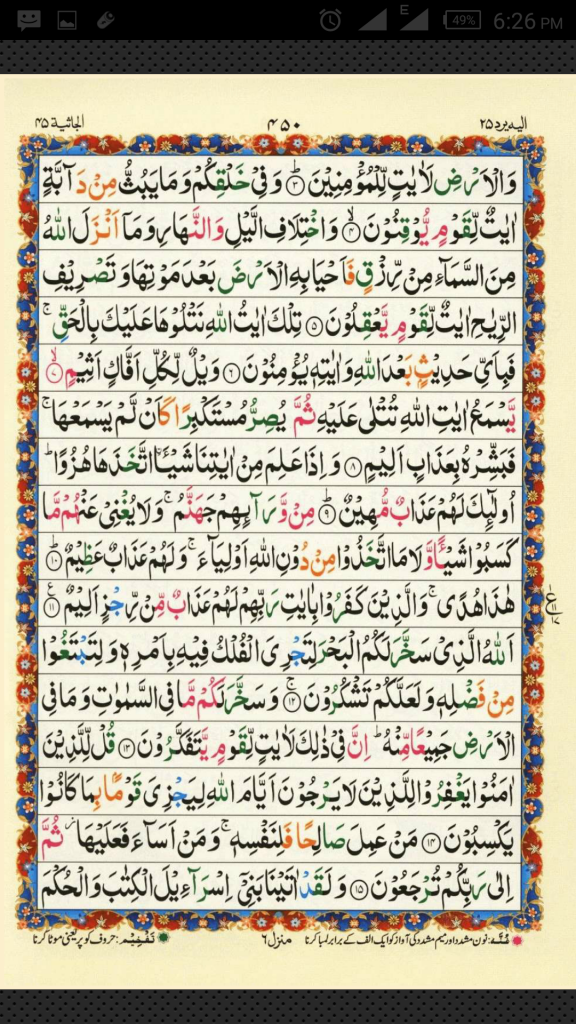 E 49% 6:26 PM
الیه یرد ۲۵ ۴۵۰ الجاثیة ۴۵
وَالْاَرْضِ لَاٰیٰتٍ لِّلْمُؤْمِنِیْنَ ﴿۳﴾ وَفِیْ خَلْقِكُمْ وَمَا یَبُثُّ مِنْ دَآبَّةٍ
اٰیٰتٌ لِّقَوْمٍ یُّوْقِنُوْنَ ﴿۴﴾ وَاخْتِلَافِ الَّیْلِ وَالنَّهَارِ وَمَاۤ اَنْزَلَ اللّٰهُ
مِنَ السَّمَآءِ مِنْ رِّزْقٍ فَاَحْیَا بِهِ الْاَرْضَ بَعْدَ مَوْتِهَا وَتَصْرِیْفِ
الرِّیٰحِ اٰیٰتٌ لِّقَوْمٍ یَّعْقِلُوْنَ ﴿۵﴾ تِلْكَ اٰیٰتُ اللّٰهِ نَتْلُوْهَا عَلَیْكَ بِالْحَقِّ ۚ
فَبِاَیِّ حَدِیْثٍۭ بَعْدَ اللّٰهِ وَاٰیٰتِهٖ یُؤْمِنُوْنَ ﴿۶﴾ وَیْلٌ لِّكُلِّ اَفَّاكٍ اَثِیْمٍ ﴿۷﴾
یَّسْمَعُ اٰیٰتِ اللّٰهِ تُتْلٰی عَلَیْهِ ثُمَّ یُصِرُّ مُسْتَكْبِرًا كَاَنْ لَّمْ یَسْمَعْهَا ۚ
فَبَشِّرْهُ بِعَذَابٍ اَلِیْمٍ ﴿۸﴾ وَاِذَا عَلِمَ مِنْ اٰیٰتِنَا شَیْـًٔا اتَّخَذَهَا هُزُوًا ؕ
اُولٰٓئِكَ لَهُمْ عَذَابٌ مُّهِیْنٌ ﴿۹﴾ مِنْ وَّرَآىِٕهِمْ جَهَنَّمُ ۚ وَلَا یُغْنِیْ عَنْهُمْ مَّا
كَسَبُوْا شَیْـًٔا وَّلَا مَا اتَّخَذُوْا مِنْ دُوْنِ اللّٰهِ اَوْلِیَآءَ ۚ وَلَهُمْ عَذَابٌ عَظِیْمٌ ﴿۱۰﴾
هٰذَا هُدًی ۚ وَالَّذِیْنَ كَفَرُوْا بِاٰیٰتِ رَبِّهِمْ لَهُمْ عَذَابٌ مِّنْ رِّجْزٍ اَلِیْمٌ ﴿۱۱﴾
اَللّٰهُ الَّذِیْ سَخَّرَ لَكُمُ الْبَحْرَ لِتَجْرِیَ الْفُلْكُ فِیْهِ بِاَمْرِهٖ وَلِتَبْتَغُوْا
مِنْ فَضْلِهٖ وَلَعَلَّكُمْ تَشْكُرُوْنَ ﴿۱۲﴾ وَسَخَّرَ لَكُمْ مَّا فِی السَّمٰوٰتِ وَمَا فِی
الْاَرْضِ جَمِیْعًا مِّنْهُ ؕ اِنَّ فِیْ ذٰلِكَ لَاٰیٰتٍ لِّقَوْمٍ یَّتَفَكَّرُوْنَ ﴿۱۳﴾ قُلْ لِّلَّذِیْنَ
اٰمَنُوْا یَغْفِرُوْا لِلَّذِیْنَ لَا یَرْجُوْنَ اَیَّامَ اللّٰهِ لِیَجْزِیَ قَوْمًۢا بِمَا كَانُوْا
یَكْسِبُوْنَ ﴿۱۴﴾ مَنْ عَمِلَ صَالِحًا فَلِنَفْسِهٖ ۚ وَمَنْ اَسَآءَ فَعَلَیْهَا ؗ ثُمَّ
اِلٰی رَبِّكُمْ تُرْجَعُوْنَ ﴿۱۵﴾ وَلَقَدْ اٰتَیْنَا بَنِیْۤ اِسْرَآءِیْلَ الْكِتٰبَ وَالْحُكْمَ
غُنَّه: نون مشدد اور میم مشدد کی آواز کو ایک الف کے برابر لمبا کرنا منزل ۶ تفخیم: حروف کو پُر یعنی موٹا کرنا